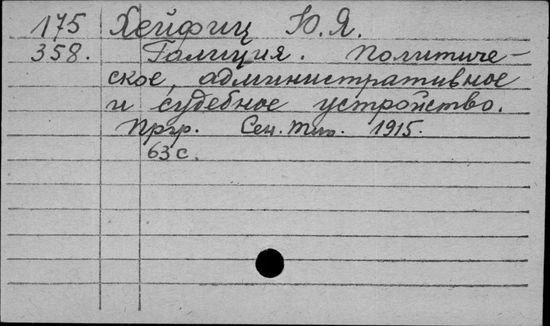 175 Хейфиц Ю.Я.
358. Галиция. Политиче-
ское, административное
и судебное устройство.
Пргр. Сен. тип. 1915.
63 с.